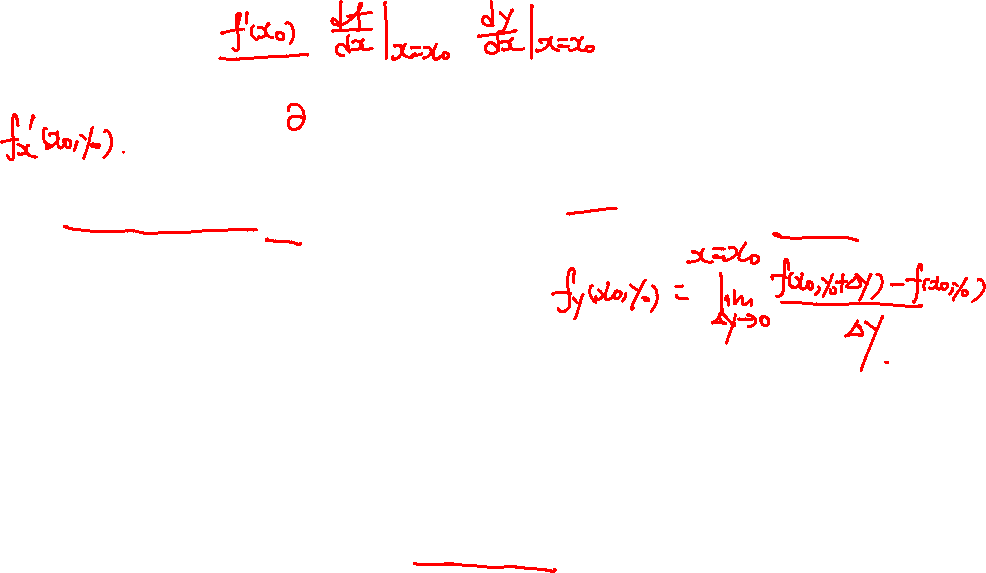 f'(x₀) df/dx|x=x₀ dy/dx|x=x₀
∂
fₓ'(x₀,y₀).
x=x₀
f_y(x₀,y₀) = lim Δy→0 f(x₀,y₀+Δy)-f(x₀,y₀) / Δy.